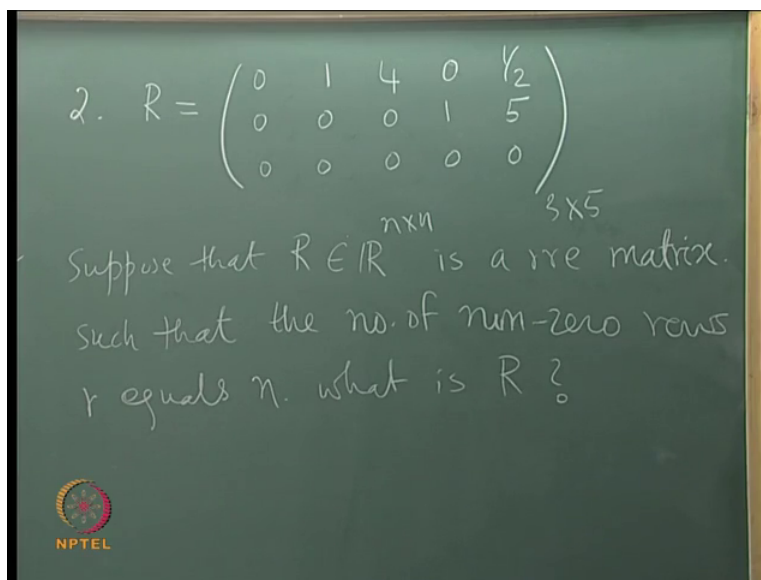 2. R = ( 0 1 4 0 1/2
0 0 0 1 5
0 0 0 0 0 ) 3x5
Suppose that R ∈ ℝ^{n×n} is a rre matrix.
such that the no. of non-zero rows
r equals n. what is R?
NPTEL